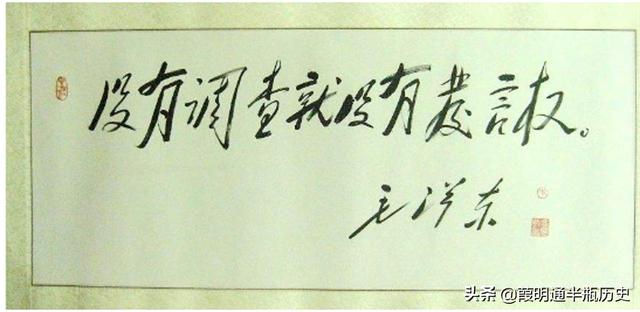 没有调查就没有發言权。
毛泽东
头条 @霞明通半瓶历史